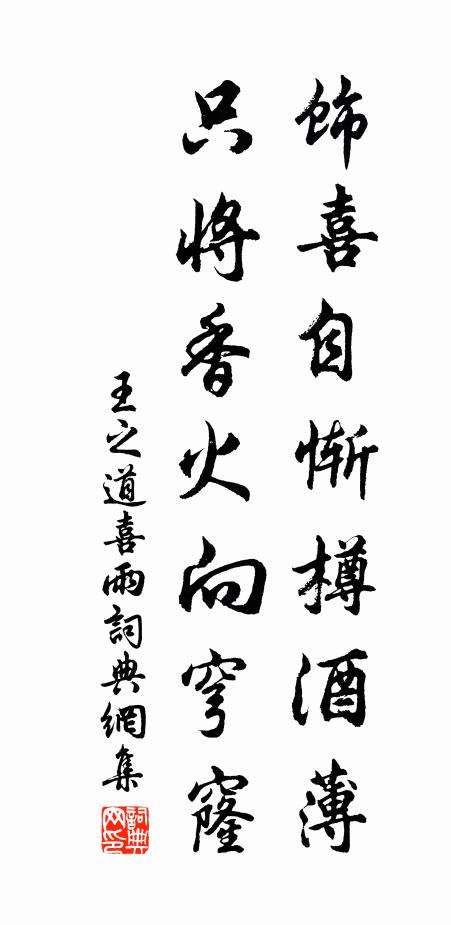 饰喜自惭樽酒薄
只将香火向穹窿
王之道喜雨詞典網集
詞典网印